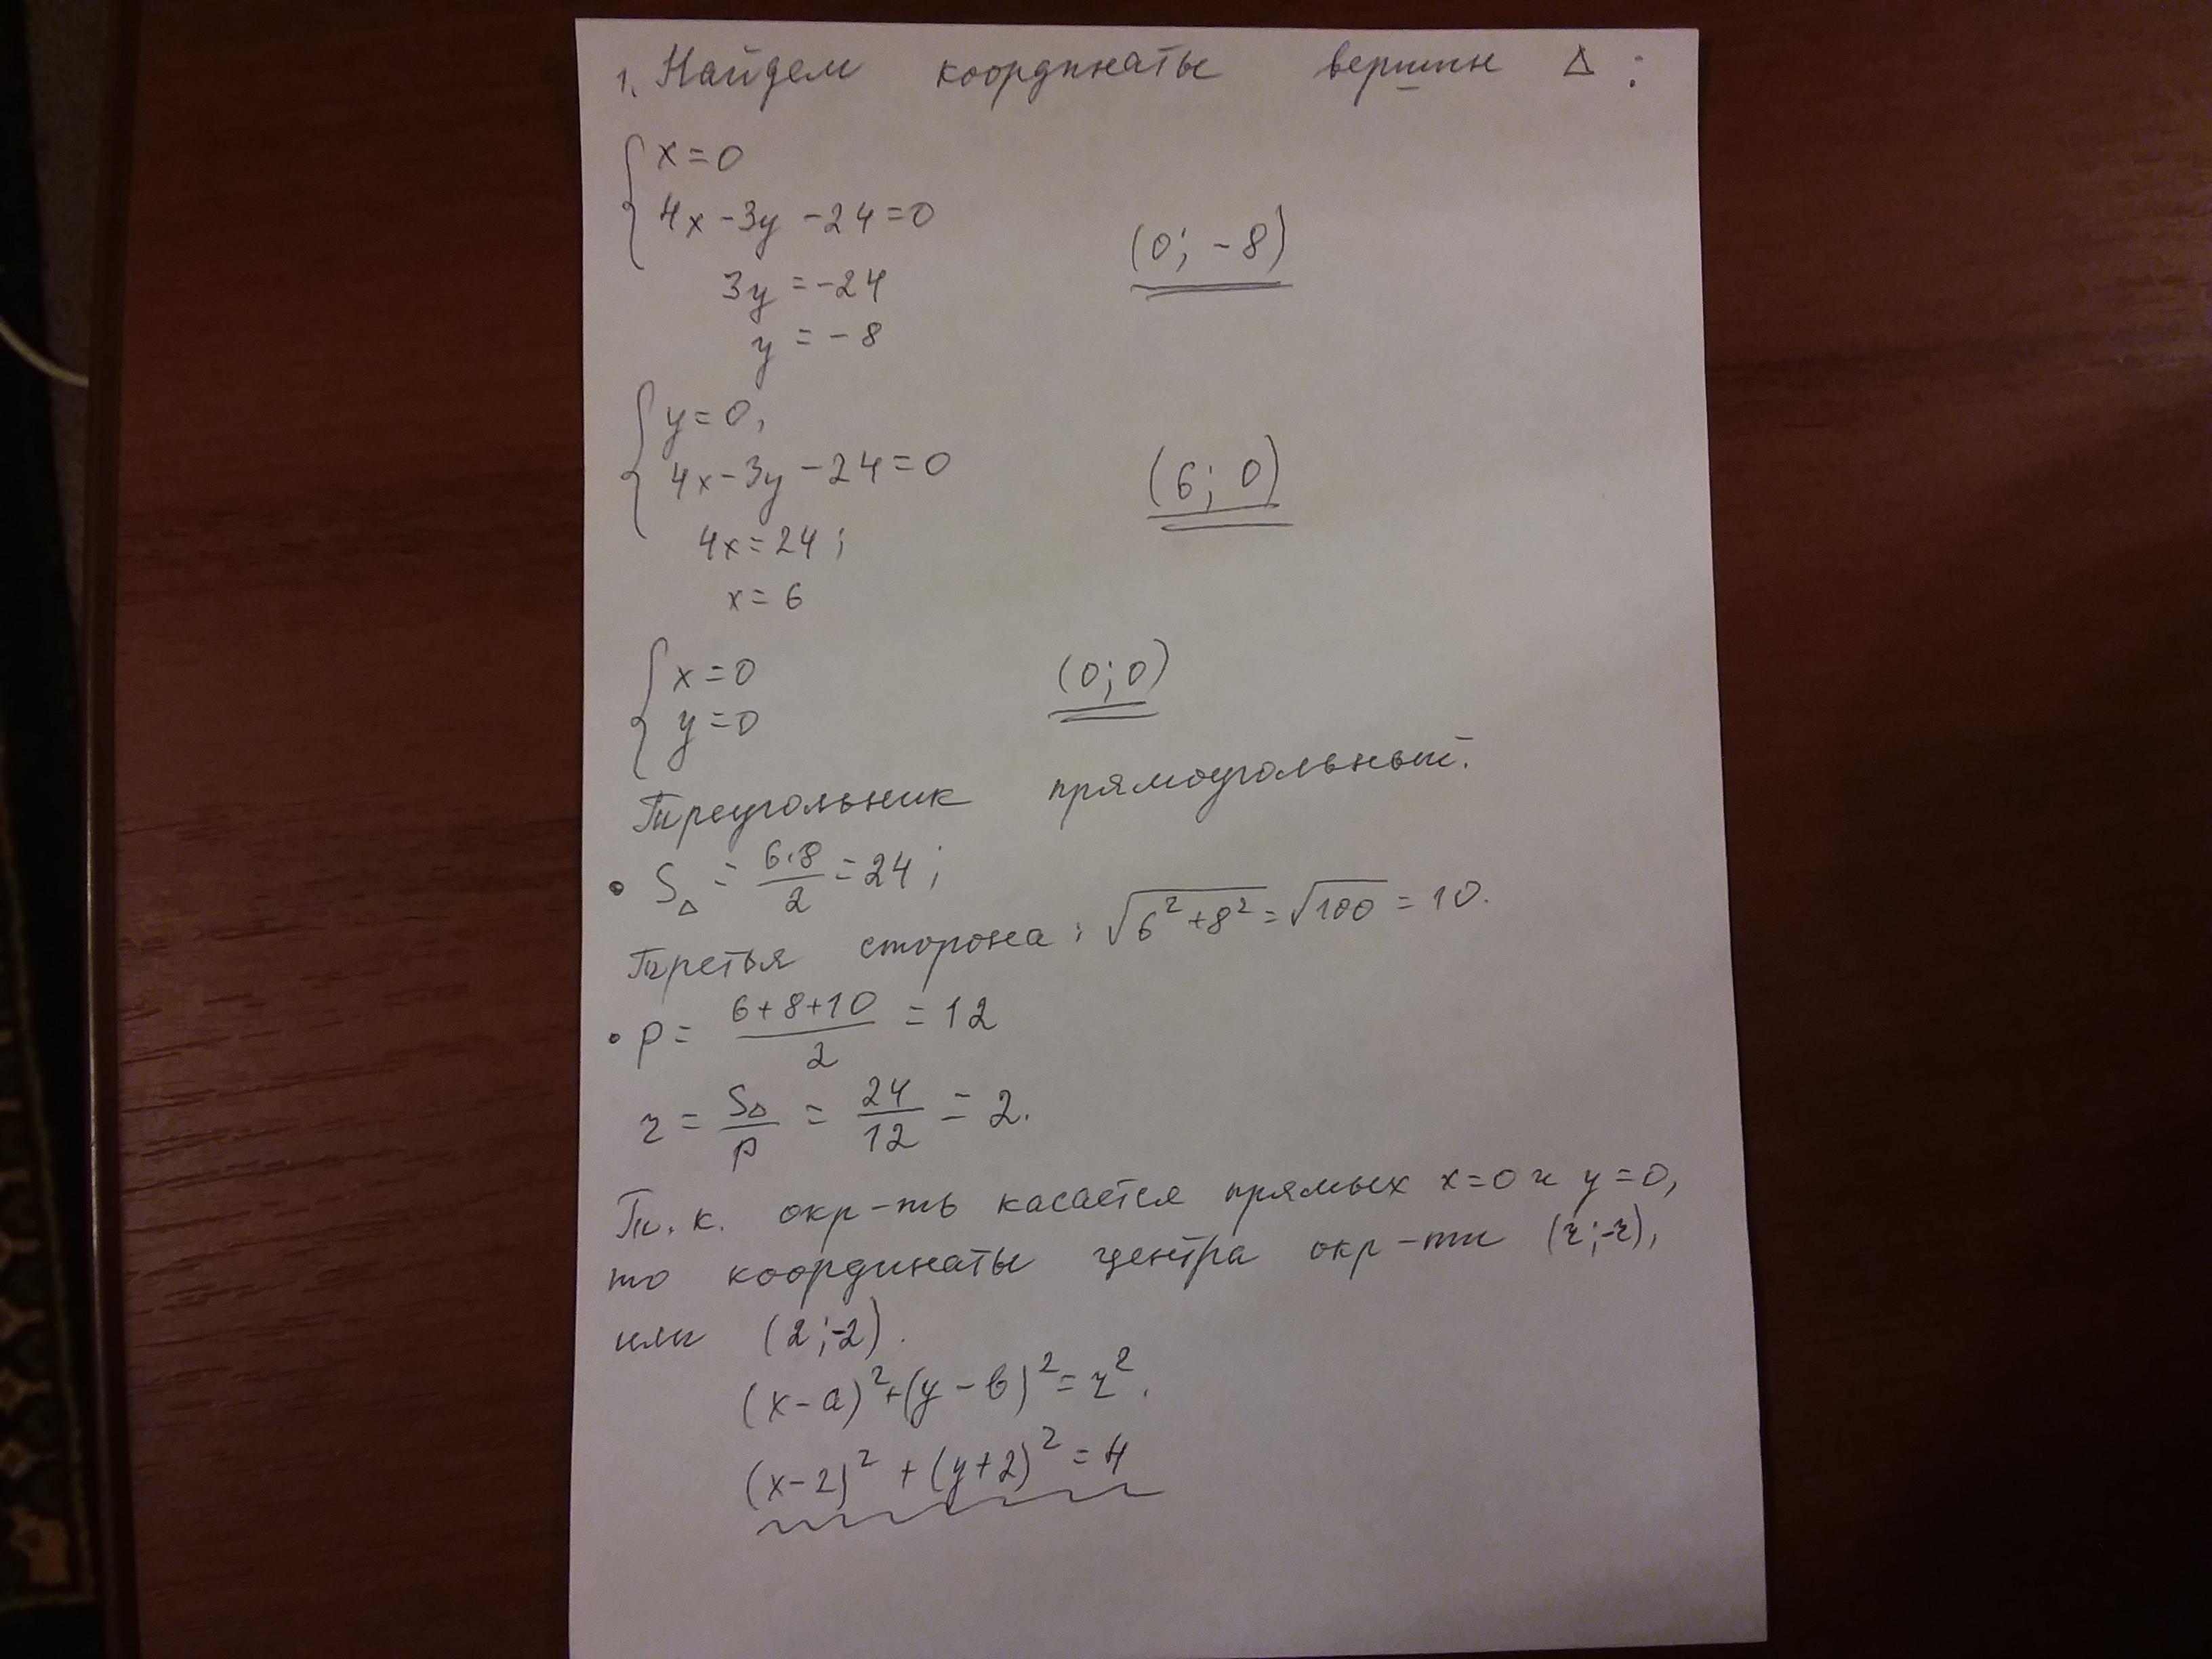 1. Найдем координаты вершин Δ:
x=0
4x-3y-24=0
3y=-24
(0; -8)
y=-8
y=0,
4x-3y-24=0
(6; 0)
4x=24;
x=6
x=0
(0;0)
y=0
Треугольник прямоугольный.
• SΔ = 6·8/2 = 24;
Третья сторона: √(6²+8²) = √100 = 10.
• p = (6+8+10)/2 = 12
r = SΔ/p = 24/12 = 2.
Т.к. окр-ть касается прямых x=0 и y=0,
то координаты центра окр-ти (r;-r),
или (2;-2).
(x-a)²+(y-b)²=r².
(x-2)²+(y+2)²=4